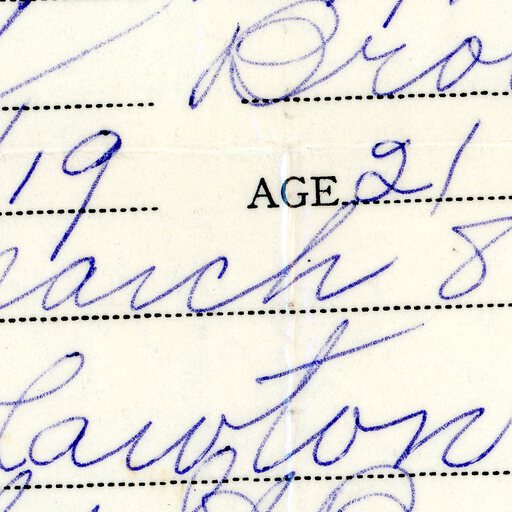 Bro
19 AGE 21
March 8
Lawton